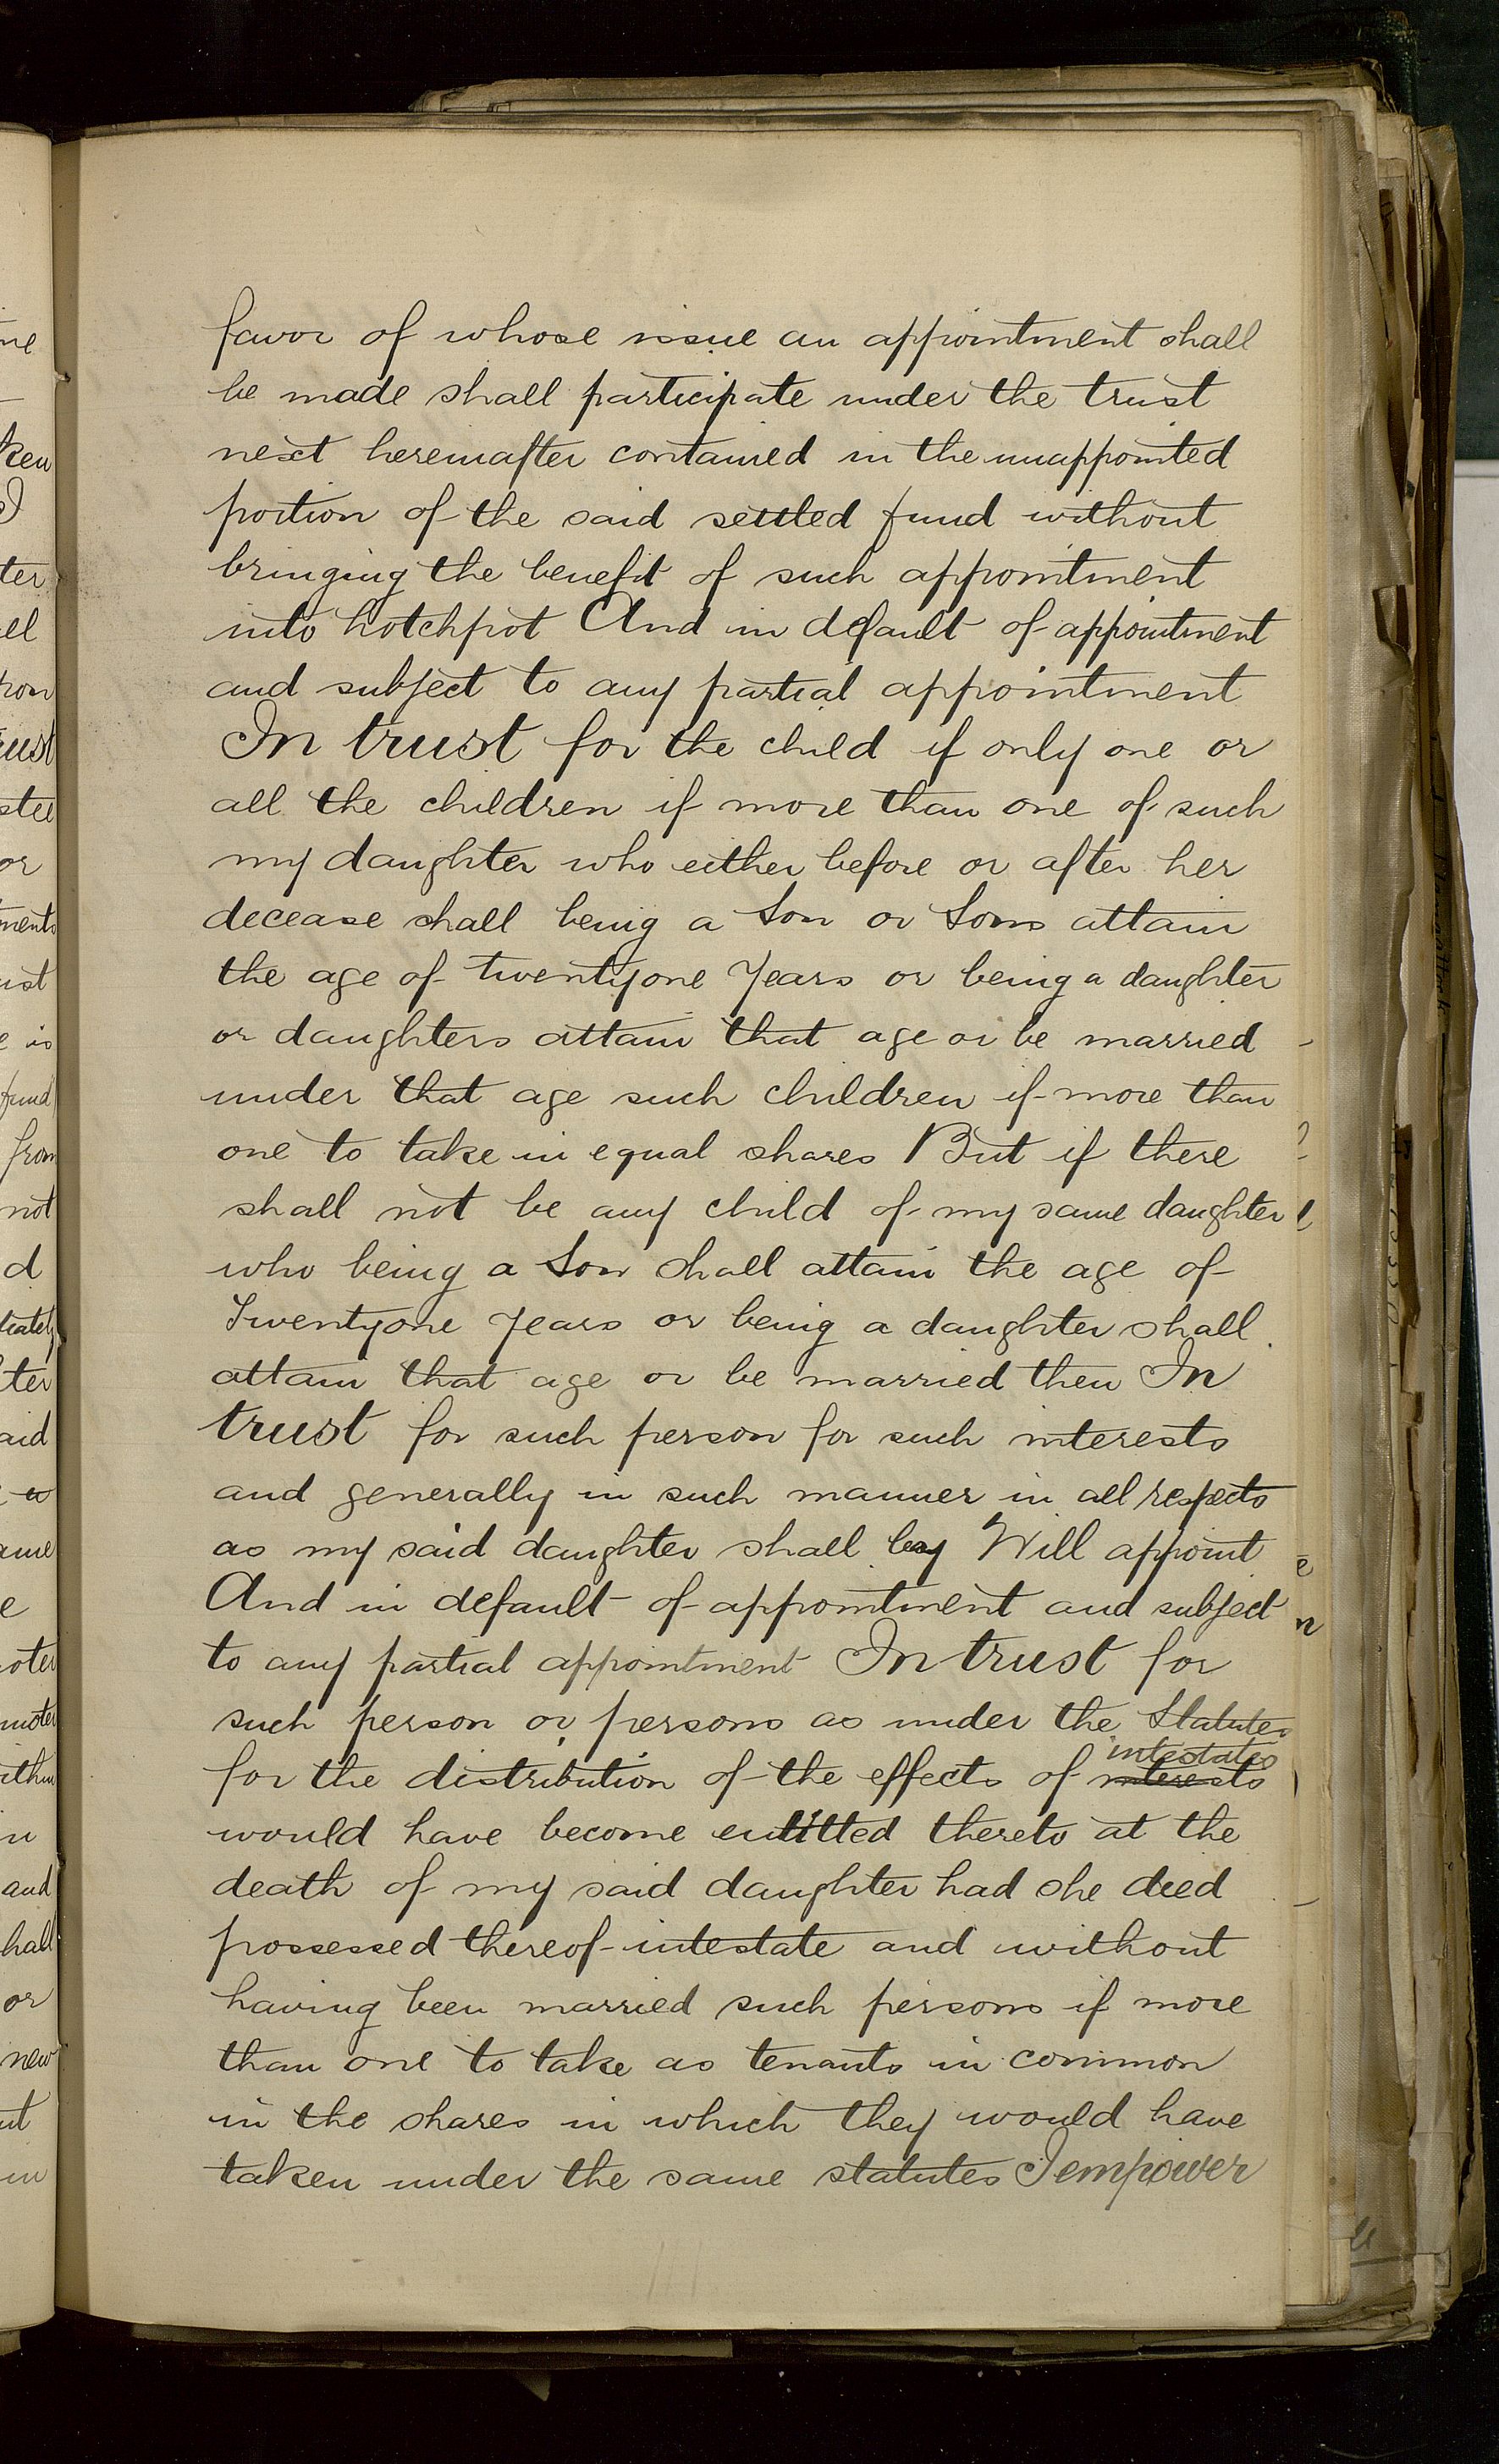 favor of whose issue an appointment shall
be made shall participate under the trust
next hereinafter contained in the unappointed
portion of the said settled fund without
bringing the benefit of such appointment
into hotchpot And in default of appointment
and subject to any partial appointment
In trust for the child if only one or
all the children if more than one of such
my daughter who either before or after her
decease shall being a Son or Sons attain
the age of twentyone years or being a daughter
or daughters attain that age or be married
under that age such children if more than
one to take in equal shares But if there
shall not be any child of my same daughter
who being a Son shall attain the age of
Twentyone years or being a daughter shall
attain that age or be married then In
trust for such person for such interests
and generally in such manner in all respects
as my said daughter shall by Will appoint
And in default of appointment and subject
to any partial appointment In trust for
such person or persons as under the Statutes
intestates
for the distribution of the effects of interests
would have become entitled thereto at the
death of my said daughter had she died
possessed thereof intestate and without
having been married such persons if more
than one to take as tenants in common
in the shares in which they would have
taken under the same statutes I empower